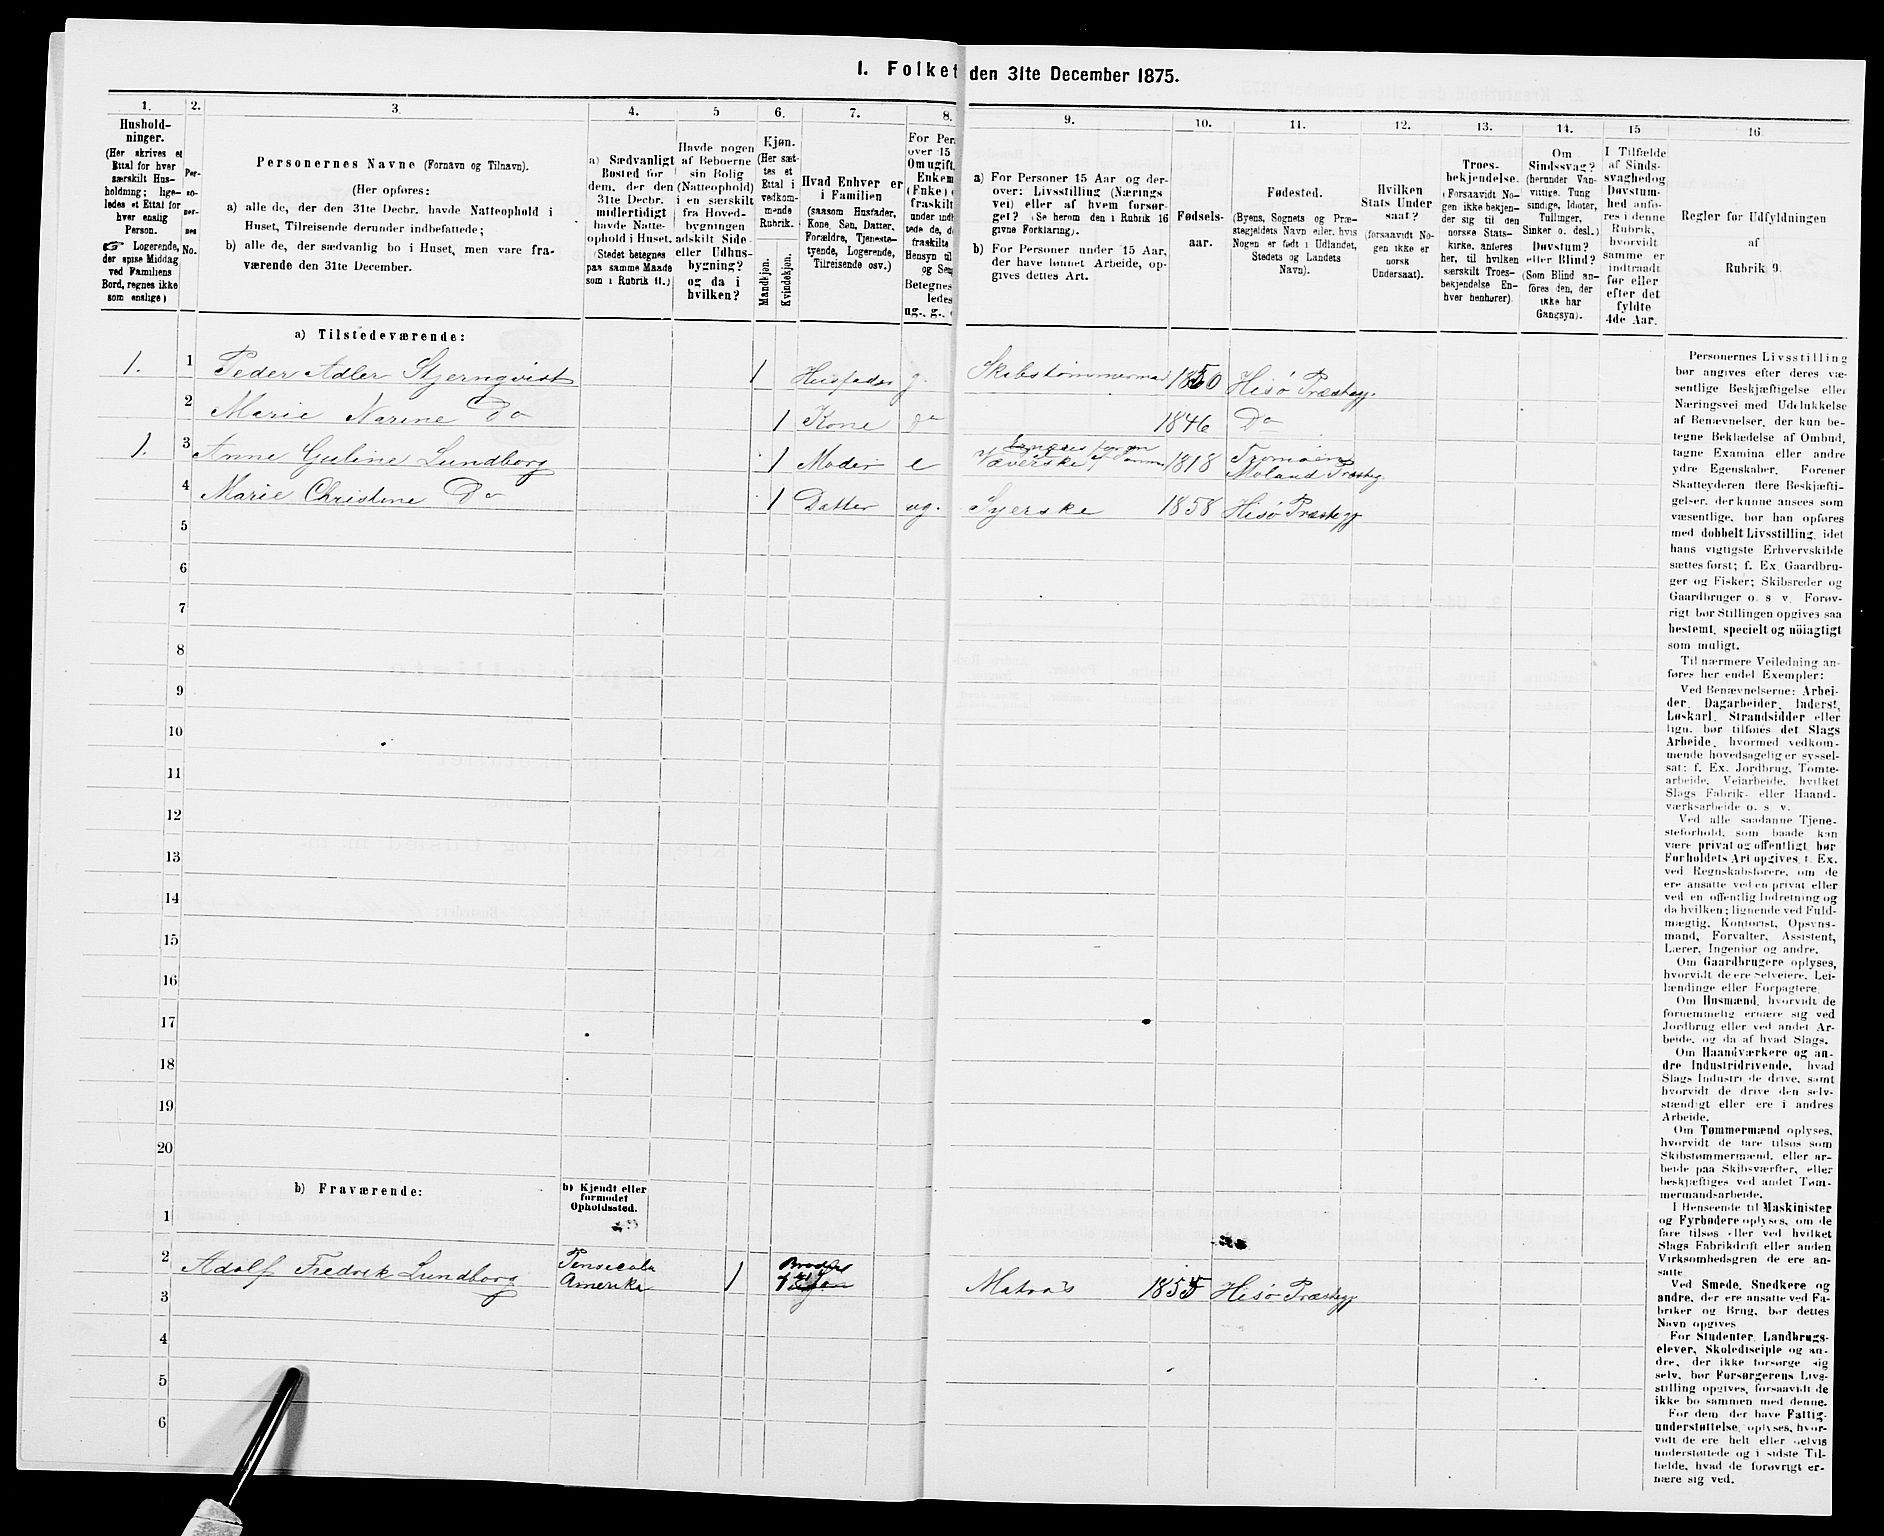 I. Folket den 31te December 1875.
1. 2. 3. 4. 5 6. 7. 8. 9. 10. 11. 12. 13. 14. 15 16
Hushold-
ninger.
(Her skrives et
Ettal for hver
særskilt Hus-
holdning; lige-
ledes et Ettal for
hver enslig
Person.
☞ Logerende,
der spise Middag
ved Familiens
Bord, regnes ikke
som enslige)
Per-
so-
ner-
nes
No.
Personernes Navne (Fornavn og Tilnavn).
(Her opføres:
a) alle de, der den 31te Decbr. havde Natteophold i
Huset, Tilreisende derunder indbefattede;
b) alle de, der sædvanlig bo i Huset, men vare fra-
værende den 31te December.
a) Sædvanligt
Bosted for
dem, der den
31te Decbr.
midlertidigt
havde Natte-
ophold i Huset.
(Stedet betegnes
paa samme Maade
som i Rubrik 11.)
Havde nogen
af Beboerne
sin Bolig
(Natteophold)
i en særskilt
fra Hoved-
bygningen
adskilt Side-
eller Udhus-
bygning?
og da i
hvilken?
Kjøn.
(Her sæt-
tes et
Ettal i
vedkom-
mende
Rubrik.)
Mandkjøn.
Kvindekjøn.
Hvad Enhver er
i Familien
(saasom Husfader,
Kone, Søn, Datter,
Forældre, Tjeneste-
tyende, Logerende,
Tilreisende osv.)
For Per
over 15
Omugift,
Enkem
(Enke)
fraskilt
under indb
tede de, d
fraskilte
Hensyn til
og Sen
Betegnes
ledes
ug., g.,
a) For Personer 15 Aar og der-
over: Livsstilling (Nærings
vei) eller af hvem forsør-
get? (Se herom den i Rubrik 16
givne Forklaring).
b) For Personer under 15 Aar,
der have lønnet Arbeide, op-
gives dettes Art.
Fødsels-
aar.
Fødested.
(Byens, Sognets og Præ-
stegjeldets Navn eller, hvis
Nogen er født i Udlandet,
Stedets og Landets
Navn).
Hvilken
Stats Under
saat?
(forsaavidt No-
gen ikke er
norsk
Undersaat).
Troes-
bekjendelse.
(Forsaavidt No-
gen ikke bekjen-
der sig til den
norske Stats-
kirke, anføres
her, til hvilken
særskilt Troes-
bekjendelse En-
hver henhører).
Om
Sindssvag?
(herunder Van-
vittige, Tung
sindige, Idioter,
Tullinger,
Sinker o. desl.)
Døvstum?
eller Blind?
(Som Blind an-
føres den, der
ikke har
Gangsyn).
I Tilfælde
af Sinds-
svaghed og
Døvstum-
hed anfø-
res i denne
Rubrik,
hvorvidt
samme er
indtraadt
før eller
efter det
fyldte
4de Aar.
Regler for Udfyldningen
af
Rubrik 9.
a) Tilstedeværende:
1. 1 Peder Adler Stjernqvist 1 Husfader g. Skibstømmermand 1850 Hisø Præstegj.
2 Marie Narine Do 1 Kone do 1846 Do
1. 3 Anne Guline Lundborg 1 Moder e Væverske 1818 Tromøen
Moland Præsteg.
4 Marie Christine Do 1 Datter ug. Syerske 1858 Hisø Præstegj
5
6
7
8
9
10
11
12
13
14
15
16
17
18
19
20
b) Fraværende:
b) Kjendt eller
formodet
Opholdssted.
1
2 Adolf Fredrik Lundborg Pensecola
Amerika 1 Broder ug Matros 1855 Hisø Præstegj
3
4
5
6
Personernes Livsstilling
bør angives efter deres væ-
sentlige Beskjæftigelse eller
Næringsvei med Udelukkelse
af Benævnelser, der kun be-
tegne Beklædelse af Ombud,
tagne Examina eller andre
ydre Egenskaber. Forener
Skatteyderen flere Beskjæfti-
gelser, der kunne ansees som
væsentlige, bør han opføres
med dobbelt Livsstilling, idet
hans vigtigste Erhvervskilde
sættes først; f. Ex. Gaardbru-
ger og Fisker; Skibsreder og
Gaardbruger o. s. v. Forøv-
rigt bør Stillingen opgives saa
bestemt, specielt og nöiagtigt
som muligt.
Til nærmere Veiledning an-
føres her endel Exempler:
Ved Benævnelserne: Arbei-
der, Dagarbeider, Inderst,
Løskarl, Strandsidder eller
lign. bør tilføies det Slags
Arbeide, hvormed vedkom-
mende hovedsagelig er syssel-
sat; f. Ex. Jordbrug, Tomte-
arbeide, Veiarbeide, hvilket
Slags Fabrik- eller Haand-
værksarbeide o. s. v.
Ved alle saadanne Tjene-
steforhold, som baade kan
være privat og offentligt, bør
Forholdets Art opgives, f. Ex.
ved Regnskabsførere, om de
ere ansatte ved en privat eller
ved en offentlig Indretning og
da hvilken; lignende ved Fuld-
mægtig, Kontorist, Opsyns-
mand, Forvalter, Assistent,
Lærer, Ingeniør og andre.
Om Gaardbrugere oplyses,
hvorvidt de ere Selveiere, Lei-
lændinge eller Forpagtere.
Om Husmænd, hvorvidt de
fornemmelig ernære sig ved
Jordbrug eller ved andet Ar-
beide, og da af hvad Slags.
Om Haandværkere og an-
dre Industridrivende, hvad
Slags Industri de drive, samt
hvorvidt de drive den selv-
stændigt eller ere i andres
Arbeide.
Om Tømmermænd oplyses,
hvorvidt de fare tilsøs som
Skibstømmermænd, eller ar-
beide paa Skibsværfter, eller
beskjæftiges ved andet Tøm-
mermandsarbeide.
I Henseende til Maskinister
og Fyrbødere oplyses, om de
fare tilsøs eller ved hvilket
Slags Fabrikdrift eller anden
Virksomhedsgren de ere an-
satte
Ved Smede, Snedkere og
andre, der ere ansatte ved Fa-
briker og Brug, bør dettes
Navn opgives
For Studenter, Landbrugs-
elever, Skoledisciple og an-
dre, der ikke forsørge sig
selv, bør Forsørgerens Livs-
stilling opgives, forsaavidt de
ikke bo sammen med denne.
For dem, der have Fattig-
understøttelse, oplyses, hvor-
vidt de ere helt eller delvis
understøttede og i sidste Til-
fælde, hvad de forøvrigt er-
nære sig ved.